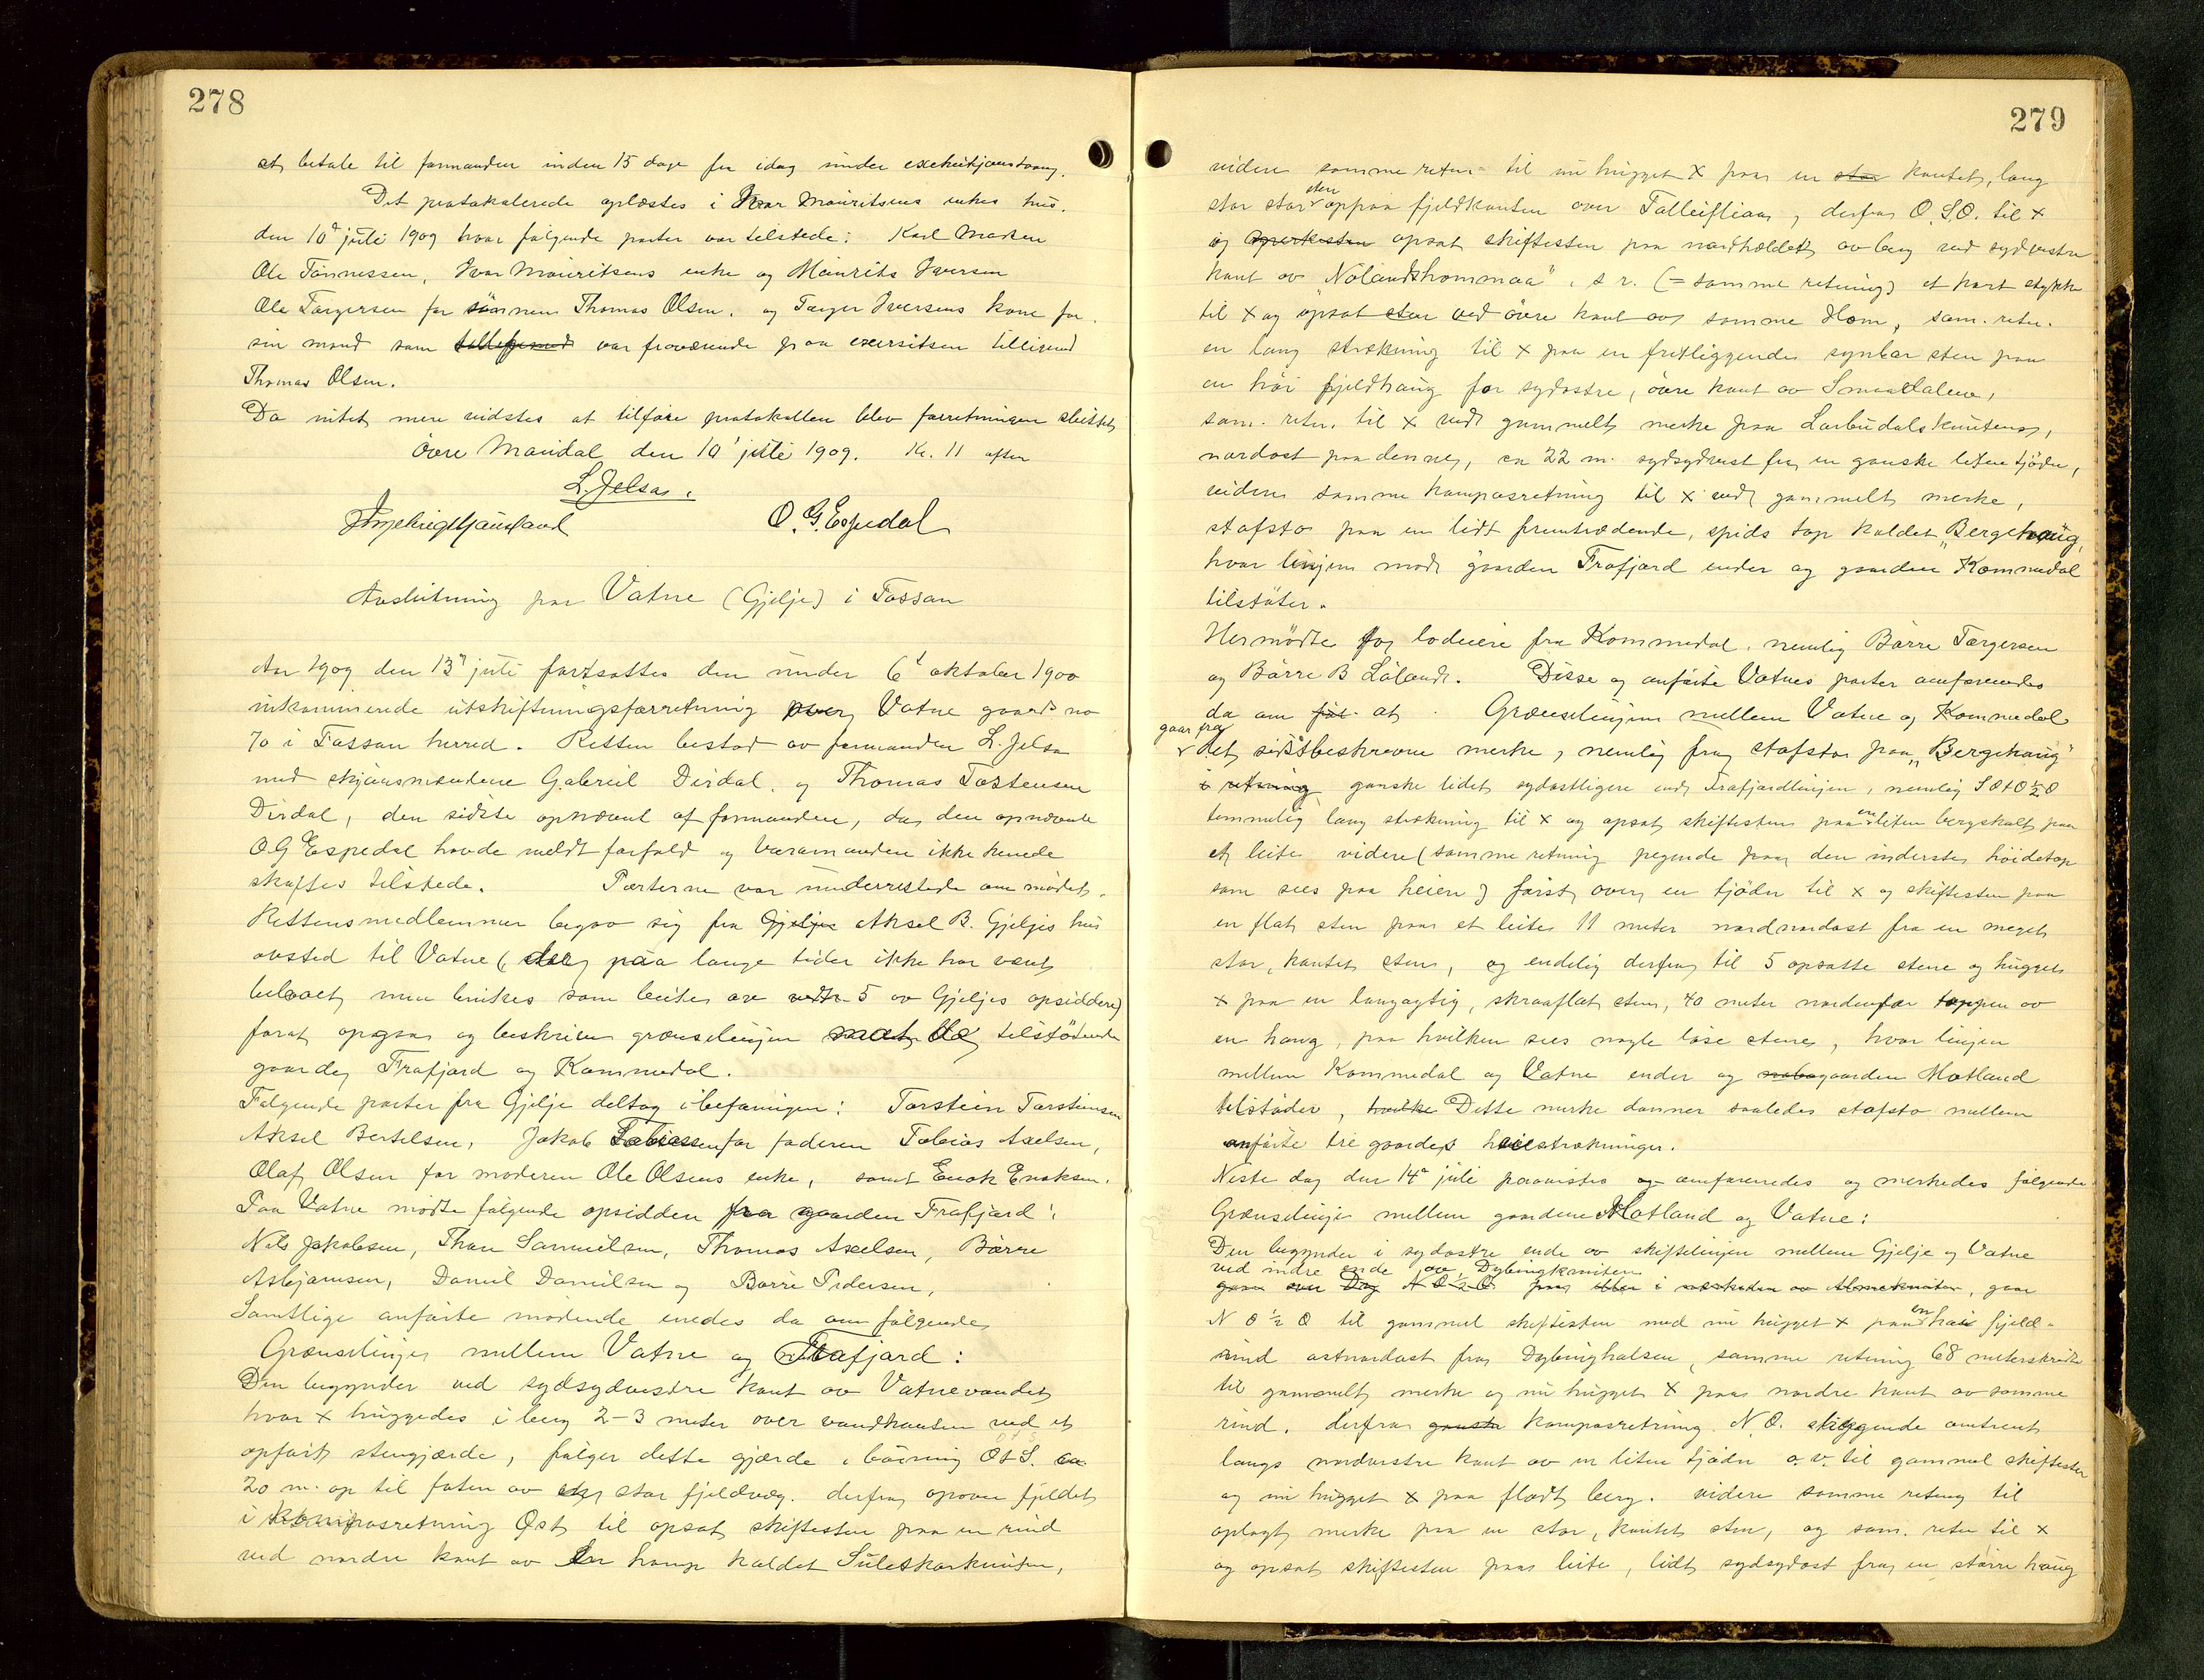 278
at betale til formanden inden 15 dage fra idag under exekutionstvang.
Det protokolerede oplæstes i Ivar Mauritsens enkes hus.
den 10d juli 1909 hvor følgende parter var tilstede: Karl Madsen
Ole Tönnessen, Ivar Mauritsens enke og Maurits Iversen
Ole Torgersen for sönnen Thomas Olsen. og Torger Iversens kone for
sin mand som var fraværende paa exersitsen tilligemed
Thomas Olsen.
Da intet mere vidstes at tilföre protokollen blev forretningen sluttet
övre Maudal den 10' juli 1909. Kl. 11 aften
L. Jelsa.
O. G. Espedal
Avslutning paa Vatne (Gjelje) i Fossan
Aar 1909 den 13d juli fortsattes den under 6t oktober 1900
inkaminerede utskiftningsforretning over Vatne gaards no
70 i Fossan herred. Retten bestod av formanden L. Jelsa
med skjönsmændene Gabriel Dirdal. og Thomas Tostensen
Dirdal, den sidste opnævnt af formanden, da den opnævnte
O G Espedal havde meldt forfald og varamanden ikke kunde
skaffes tilstede. Parterne var underrettede om mödet.
Rettensmedlemmer begav sig fra Gjeljes Aksel B. Gjeljes hus
avsted til Vatne (der paa lange tider ikke har vært
beboet, men brukes som beite av 5 av Gjeljes opsiddere)
forat opgaa og beskrive grænselinjen mot de tilstödende
gaarde, Frafjord og Kommedal.
Følgende parter fra Gjelje deltog i befaringen: Torstein Torsteinsen
Aksel Bertelsen, Jakob Tobiassen for faderen Tobias Axelsen,
Olaf Olsen for moderen Ole Olsens enke, samt Enok Enoksen.
Paa Vatne mødte følgende opsiddere fra gaarden Frafjord:
Nils Jakobsen, Thore Samuelsen, Thomas Axelsen, Börre
Asbjørnsen, Daniel Danielsen og Börre Pedersen,
Samtlige anførte mødende enedes da om følgende
Grænselinje mellem Vatne og Frafjord:
Den begynder ved sydsydvestre kant av Vatnevandet
hvor x huggedes i berg 2-3 meter over vandkanten ved et
opført stengjærde, følger dette gjærde i boining O t S. ca
20 m. op til foten av en stor fjeldvæg. derfra opover fjeldet
i kompasretning Øst til opsat skiftesten paa en rind
ved nordre kant av en haug kaldet Suleskarknuten,
279
videre samme retn. til nu hugget x paa en kantet, lang
stor sten oppaa fjeldkanten over Talleifliaa, derfra O.S.O. til x
og opsat skiftesten paa nordholdet av berg ved sydvestre
kant av "Nolandshommaa", s r. (= samme retning) et kort stykke
til x og opsat sten ved övre kant av samme Hom, sam. retn.
en lang strækning til x paa en fritliggende synbar sten paa
en höi fjeldhaug for sydöstre, övre kant av Smaadalene,
sam. retn. til x ved gammelt merke paa Larbudalsknuten,
nordost paa denne, ca 22 m. sydsydvest fra en ganske liten tjödn,
videre samme kompasretning til x ved gammelt merke,
stafsto paa en lidt fremtrædende, spids top kaldet "Bergehaug,
hvor linjen mod gaarden Frafjord ender og gaarden Kommedal
tilstöter.
Her mödte for lodeiere fra Kommedal. nemlig Börre Torgersen
og Börre B Löland. Disse og anförte Vatnes parter omforenedes
da om at Grænselinjen mellem Vatne og Kommedal
gaar fra
det sidstbeskrevne merke, nemlig fra stafsto paa "Bergehaug"
ganske lidet sydostligere end Frafjordlinjen, nemlig SOtO½O
temmelig lang strekning til x og opsat skiftesten paa en liten bergskolt paa
et leite videre (samme retning pegende paa den inderste höidetop
som sees paa heien) först over en tjödn til x og skiftesten paa
en flat sten paa et leite 11 meter nordnordost fra en meget
stor, kantet sten, og endelig derfra til 5 opsatte stene og hugget
x paa en langagtig, skraaflat sten, 40 meter nordenfor toppen av
en haug, paa hvilken sees nogle löse stene, hvor linjen
mellem Kommedal og Vatne ender og gaarden Motland
tilstöder, Dette merke danner saaledes stafsto mellem
anförte tre gaardes heiestrækninger.
Neste dag den 14d juli paavistes og omforenedes og merkedes følgende
Grænselinje mellem gaardene Motland og Vatne:
Den begynder i sydostre ende av skiftelinjen mellem Gjelje og Vatne
ved indre ende av Dybingknuten
gaar
N O ½ O til gammel skiftesten med nu hugget x paa en höi fjeld-
rind ostnordost fra Dybinghalsen, samme retning 68 meterskridt
til gammelt merke og nu hugget x paa nordre kant av samme
rind. derfra kompasretning N.O. skiggende omtrent
langs nordvestre kant av en liten tjödn o. v. til gammel skiftesten
og nu hugget x paa fladt berg. videre samme retning til
oplagt merke paa en stor, kantet sten, og sam. retn til x
og opsat skiftesten paa leite, lidt sydsydost fra en större haug